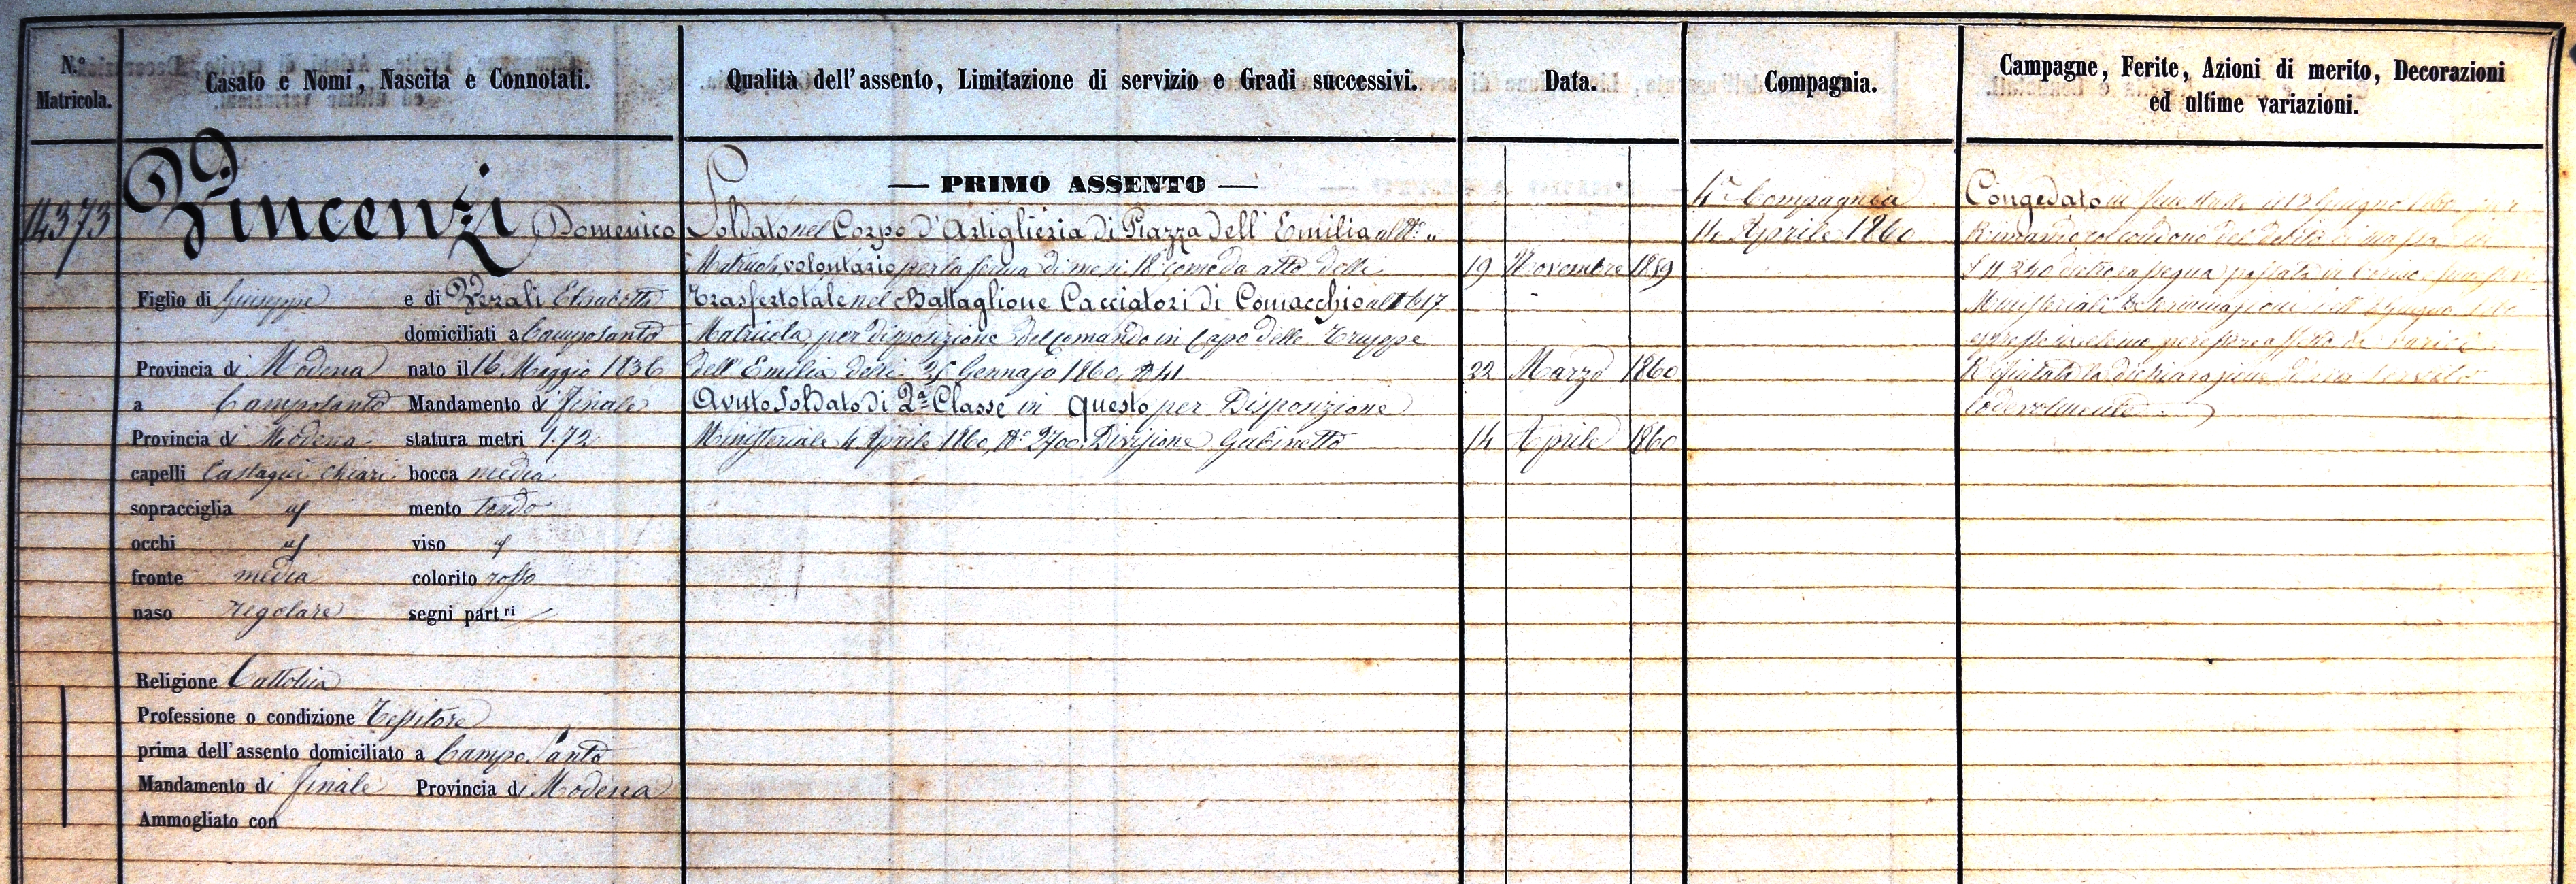 N.º Matricola.
Casato e Nomi, Nascita e Connotati.
Qualità dell'assento, Limitazione di servizio e Gradi successivi.
Data.
Compagnia.
Campagne, Ferite, Azioni di merito, Decorazioni
ed ultime variazioni.
14373
Vincenzi Domenico
Figlio di Giuseppe e di Verali Elisabetta
domiciliati a Camposanto
Provincia di Modena nato il 16 Maggio 1836
a Camposanto Mandamento di Finale
Provincia di Modena statura metri 1.72
capelli Castagni chiari bocca media
sopracciglia id mento tondo
occhi id viso id
fronte media colorito rosso
naso regolare segni part.ri
Religione Cattolica
Professione o condizione Tessitore
prima dell'assento domiciliato a Campo Santo
Mandamento di Finale Provincia di Modena
Ammogliato con
— PRIMO ASSENTO —
Soldato nel Corpo d'Artiglieria di Piazza dell'Emilia al N.º "
Matricola volontario per la ferma di mesi 18 come da atto delli 19 Novembre 1859
Trasferto tale nel Battaglione Cacciatori di Comacchio al N 617
Matricola per disposizione del Comando in Capo delle Truppe
dell'Emilia delli Gennajo 1860, N 41 22 Marzo 1860
Avuto Soldato di 2ª Classe in questo per Disposizione
Ministeriale 4 Aprile 1860, N.º 2700, Divisione Gabinetto 14 Aprile 1860
4ª Compagnia
14 Aprile 1860
Congedato in Giugno
Rimandato
S 11 240
Ministeriali Determinazioni Giugno
di varici
Rifiutata la dichiarazione di aver servito
lodevolmente